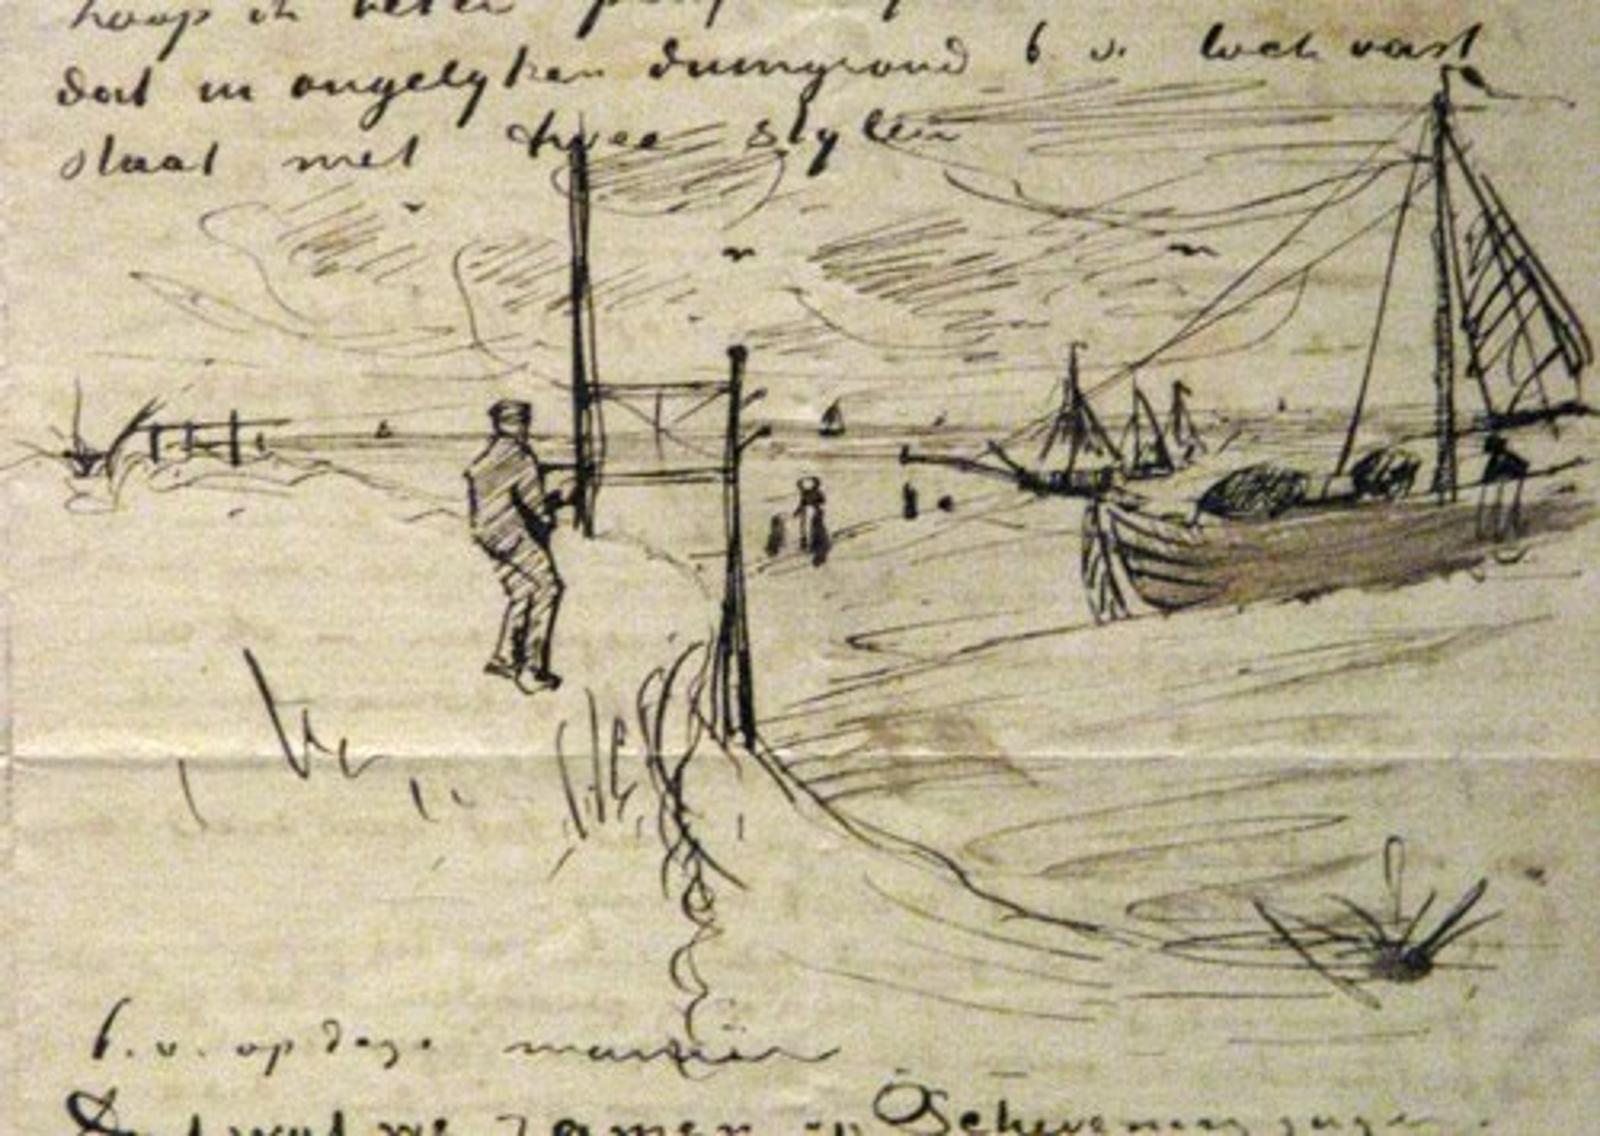 hoop ik beter
dat in ongelyken duingrond b. v. toch vast
staat met twee stylen
b. v. op deze manier
Dat wat we zamen op Schevening zagen